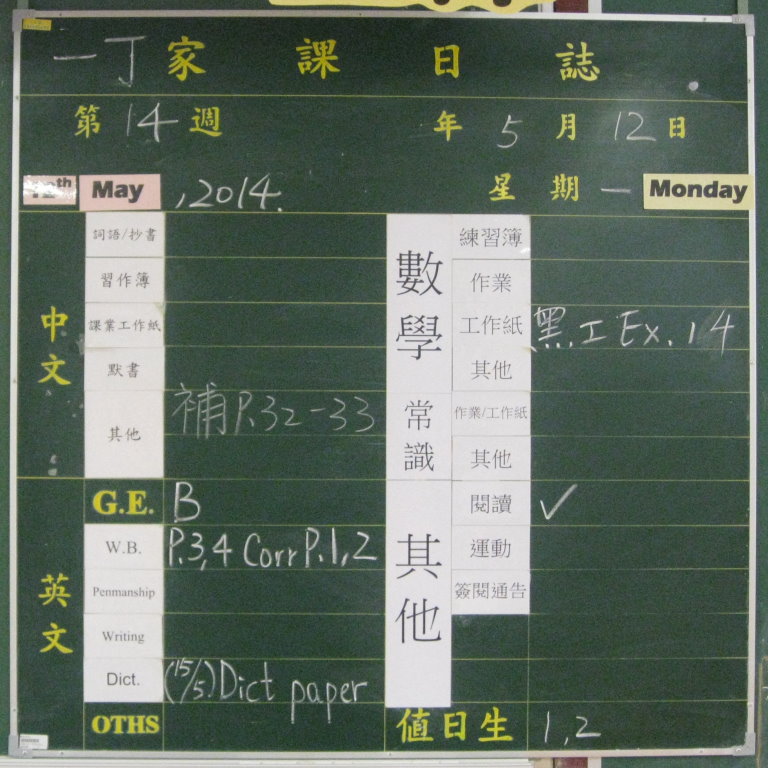 一丁家課日誌
第14週 年5月12日
12th May ,2014. 星期一 Monday
中文
詞語/抄書
習作簿
課業工作紙
默書
其他 補P.32-33
英文
G.E. B
W.B. P.3,4 Corr P.1,2
Penmanship
Writing
Dict. (15/5)Dict paper
OTHS
數學
練習簿
作業
工作紙 黑工Ex.14
其他
常識
作業/工作紙
其他
其他
閱讀 ✓
運動
簽閱通告
值日生 1,2